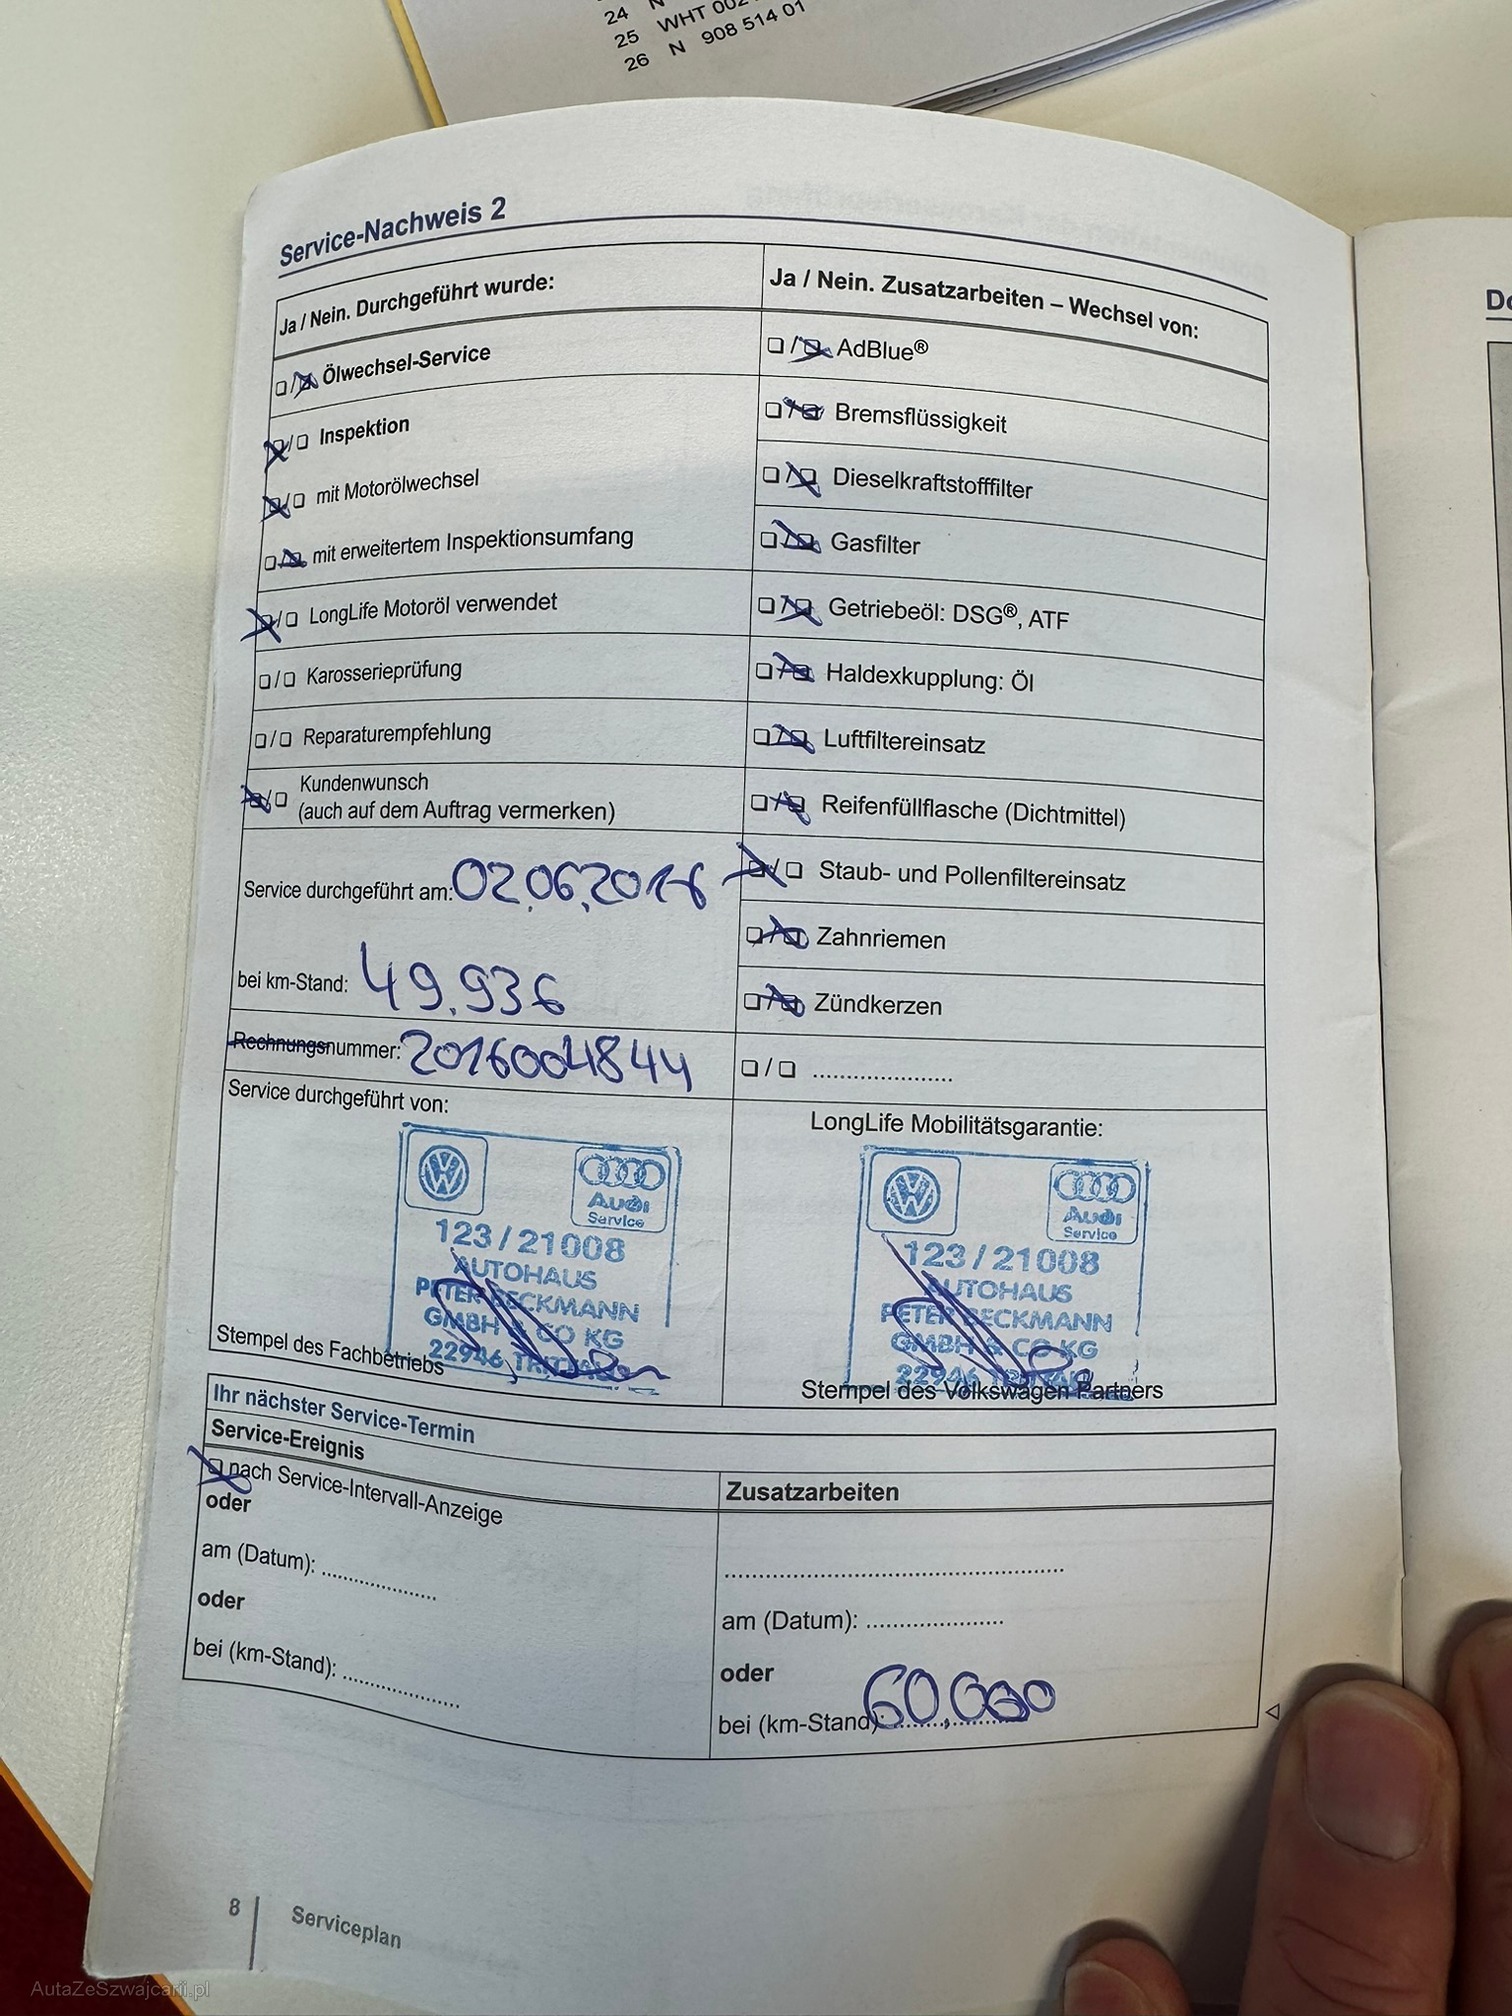 24 N
25 WHT 002
26 N 908 514 01
Service-Nachweis 2
Ja / Nein. Durchgeführt wurde:
Ölwechsel-Service
Inspektion
mit Motorölwechsel
mit erweitertem Inspektionsumfang
LongLife Motoröl verwendet
Karosserieprüfung
Reparaturempfehlung
Kundenwunsch
(auch auf dem Auftrag vermerken)
Service durchgeführt am: 02.06.2016
bei km-Stand: 49.936
Rechnungsnummer: 2016004844
Service durchgeführt von:
VW
Audi
Service
123 / 21008
AUTOHAUS
PETER BECKMANN
GMBH & CO KG
22946
Stempel des Fachbetriebs
Ja / Nein. Zusatzarbeiten – Wechsel von:
AdBlue®
Bremsflüssigkeit
Dieselkraftstofffilter
Gasfilter
Getriebeöl: DSG®, ATF
Haldexkupplung: Öl
Luftfiltereinsatz
Reifenfüllflasche (Dichtmittel)
Staub- und Pollenfiltereinsatz
Zahnriemen
Zündkerzen
....................
LongLife Mobilitätsgarantie:
VW
Audi
Service
123 / 21008
AUTOHAUS
PETER BECKMANN
GMBH & CO KG
22946
Stempel des Volkswagen Partners
Ihr nächster Service-Termin
Service-Ereignis
nach Service-Intervall-Anzeige
oder
am (Datum): .................
oder
bei (km-Stand): .................
Zusatzarbeiten
am (Datum): ....................
oder
bei (km-Stand): 60.000
8 Serviceplan
AutaZeSzwajcarii.pl